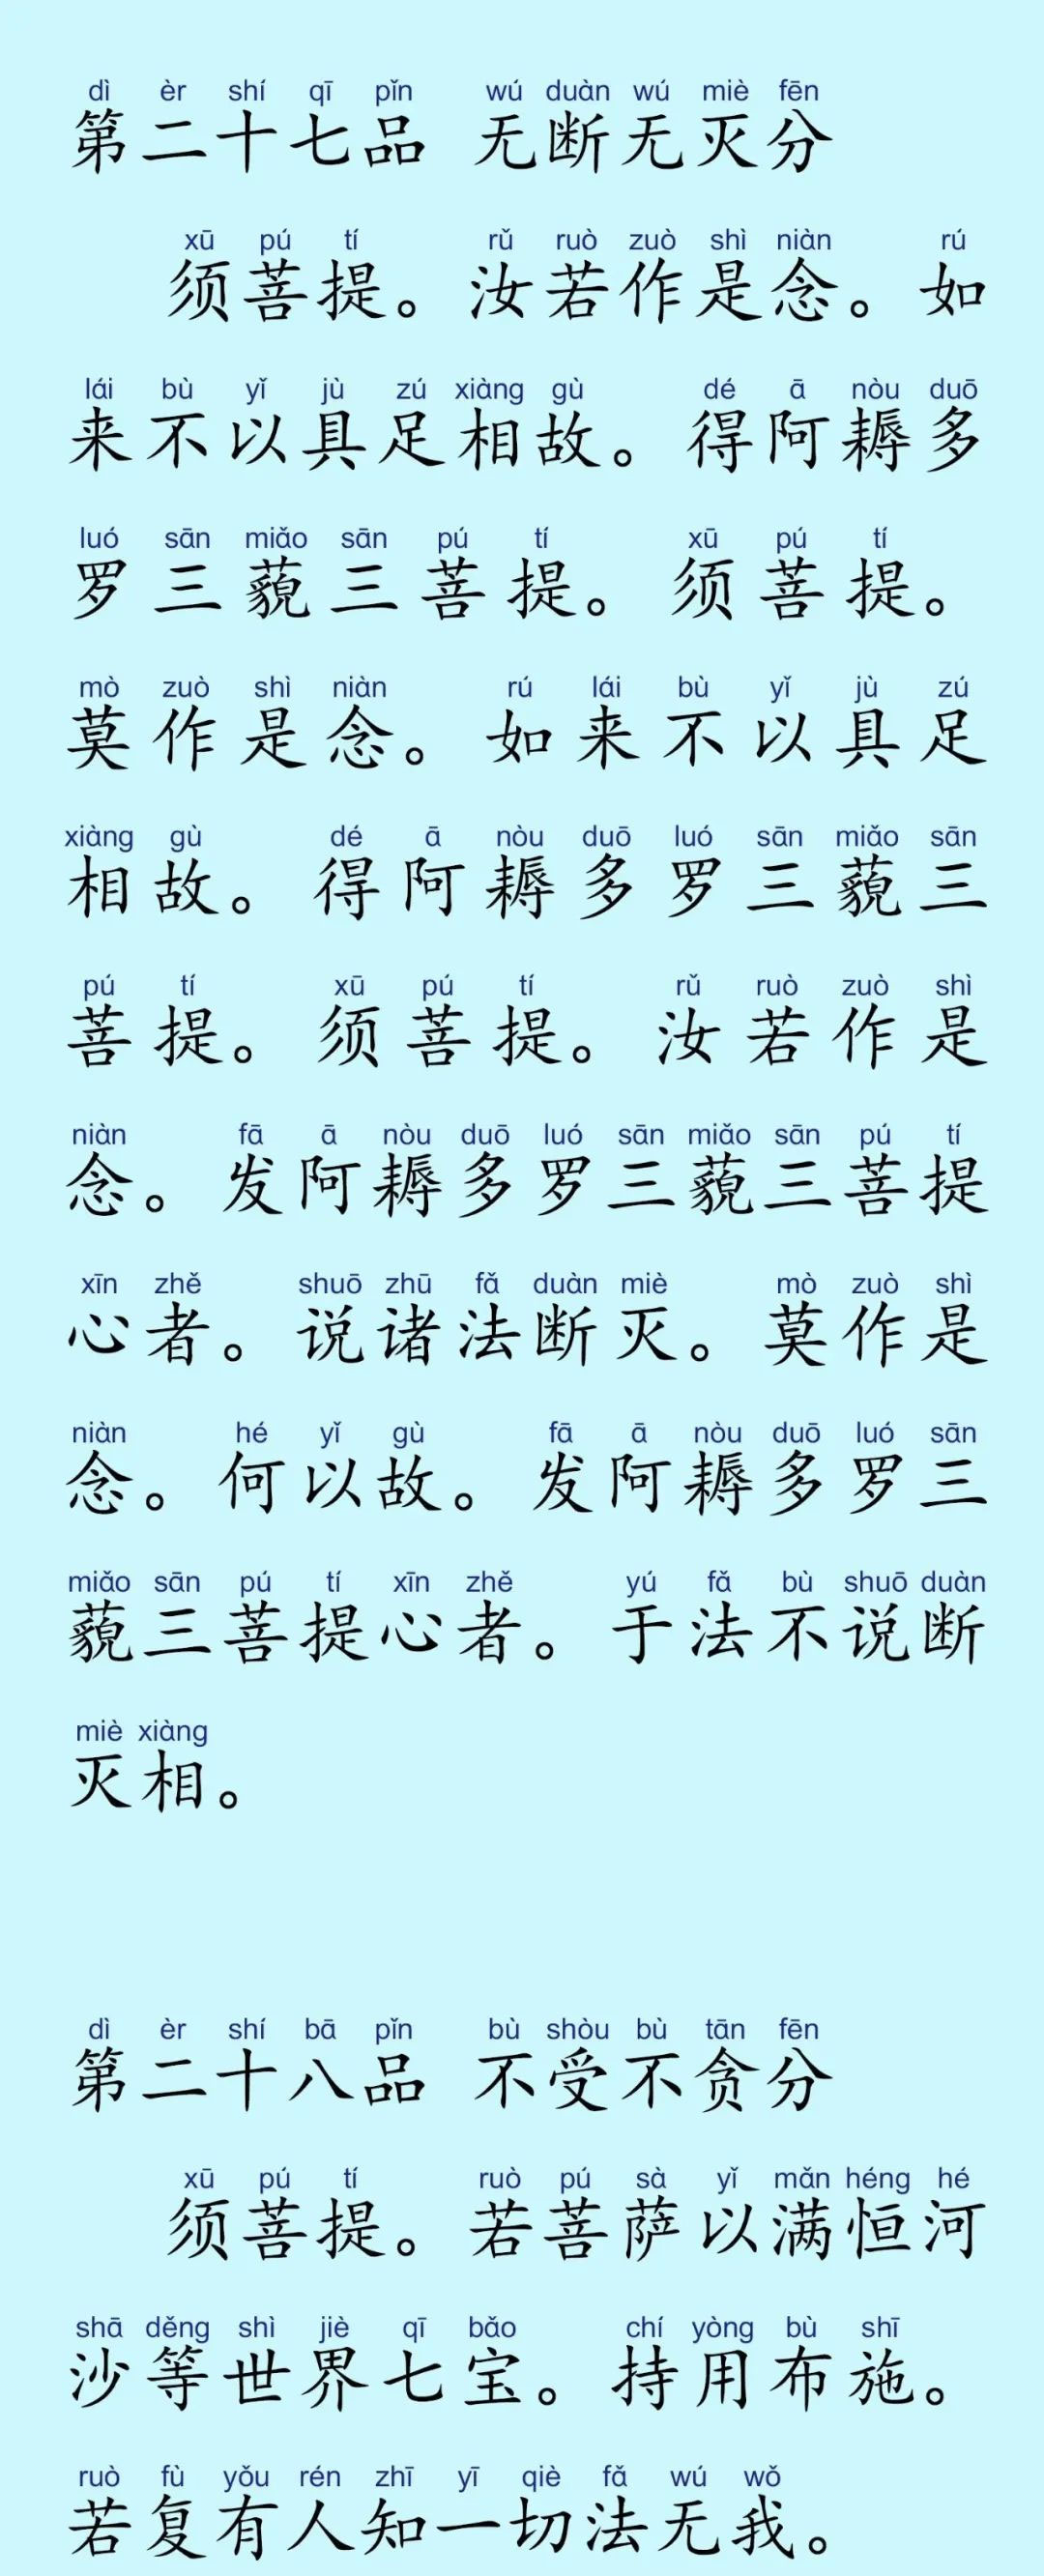 dì èr shí qī pǐn wú duàn wú miè fēn
第二十七品 无断无灭分
xū pú tí rǔ ruò zuò shì niàn rú
须菩提。汝若作是念。如
lái bù yǐ jù zú xiàng gù dé ā nòu duō
来不以具足相故。得阿耨多
luó sān miǎo sān pú tí xū pú tí
罗三藐三菩提。须菩提。
mò zuò shì niàn rú lái bù yǐ jù zú
莫作是念。如来不以具足
xiàng gù dé ā nòu duō luó sān miǎo sān
相故。得阿耨多罗三藐三
pú tí xū pú tí rǔ ruò zuò shì
菩提。须菩提。汝若作是
niàn fā ā nòu duō luó sān miǎo sān pú tí
念。发阿耨多罗三藐三菩提
xīn zhě shuō zhū fǎ duàn miè mò zuò shì
心者。说诸法断灭。莫作是
niàn hé yǐ gù fā ā nòu duō luó sān
念。何以故。发阿耨多罗三
miǎo sān pú tí xīn zhě yú fǎ bù shuō duàn
藐三菩提心者。于法不说断
miè xiàng
灭相。
dì èr shí bā pǐn bù shòu bù tān fēn
第二十八品 不受不贪分
xū pú tí ruò pú sà yǐ mǎn héng hé
须菩提。若菩萨以满恒河
shā děng shì jiè qī bǎo chí yòng bù shī
沙等世界七宝。持用布施。
ruò fù yǒu rén zhī yī qiè fǎ wú wǒ
若复有人知一切法无我。